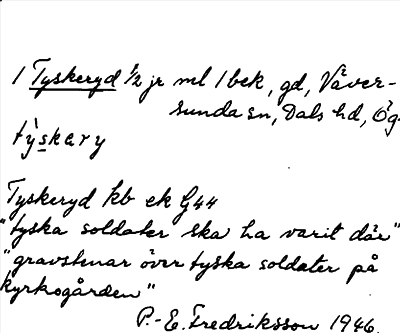 1 Tyskeryd ½ jr ml 1 bek, gd, Väver-
sunda sn, Dals hd, Ög.
tỳskary
Tyskeryd kb ek G44
"tyska soldater ska ha varit där"
"gravstenar över tyska soldater på
kyrkogården"
P.-E. Fredriksson 1946.